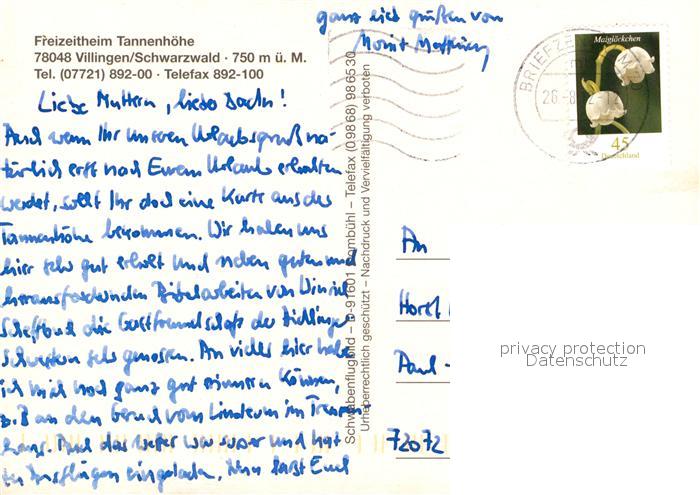 ganz lieb grüßen von
Freizeitheim Tannenhöhe
78048 Villingen/Schwarzwald · 750 m ü. M.
Tel. (07721) 892-00 · Telefax 892-100
Liebe Muttern, lieber Dachs!
Auch wenn Ihr unseren Urlaubsgruß na-
türlich erst nach Eurem Urlaub erhalten
werdet, sollt Ihr doch eine Karte aus der
Tannenhöhe bekommen. Wir haben uns
hier sehr gut erholt und neben guten und
herausfordernden Bibelarbeiten von
die Gastfreundschaft der Aidlinger
Schwestern sehr genossen. An vieles hier habe
ich mich noch ganz gut erinnern können,
z.B an den Geruch vom Linoleum im Treppen-
haus. Auch das Wetter war super und hat
zu Ausflügen eingeladen. Nun laßt Euch
Schwabenflugbild – D-91601 Dombühl – Telefax (0 98 68) 98 65 30
Urheberrechtlich geschützt – Nachdruck und Vervielfältigung verboten
BRIEFZE
26.-8.
Maiglöckchen
45
Deutschland
An
Horst
Paul-
72072
privacy protection
Datenschutz